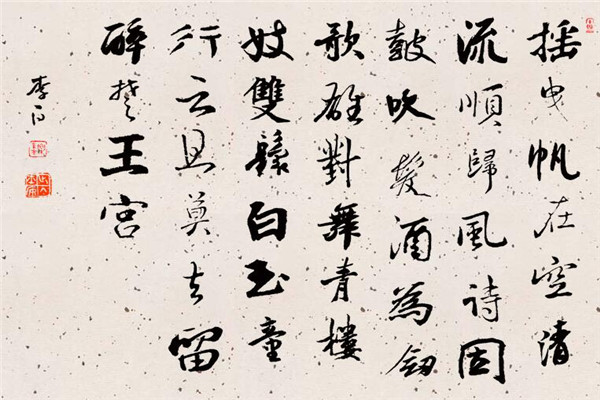 搖曳帆在空清
流順歸風詩因
鼓吹發酒為劍
歌雄對舞青樓
妓雙鬟白玉童
行云且莫去留
醉楚王宮
李白